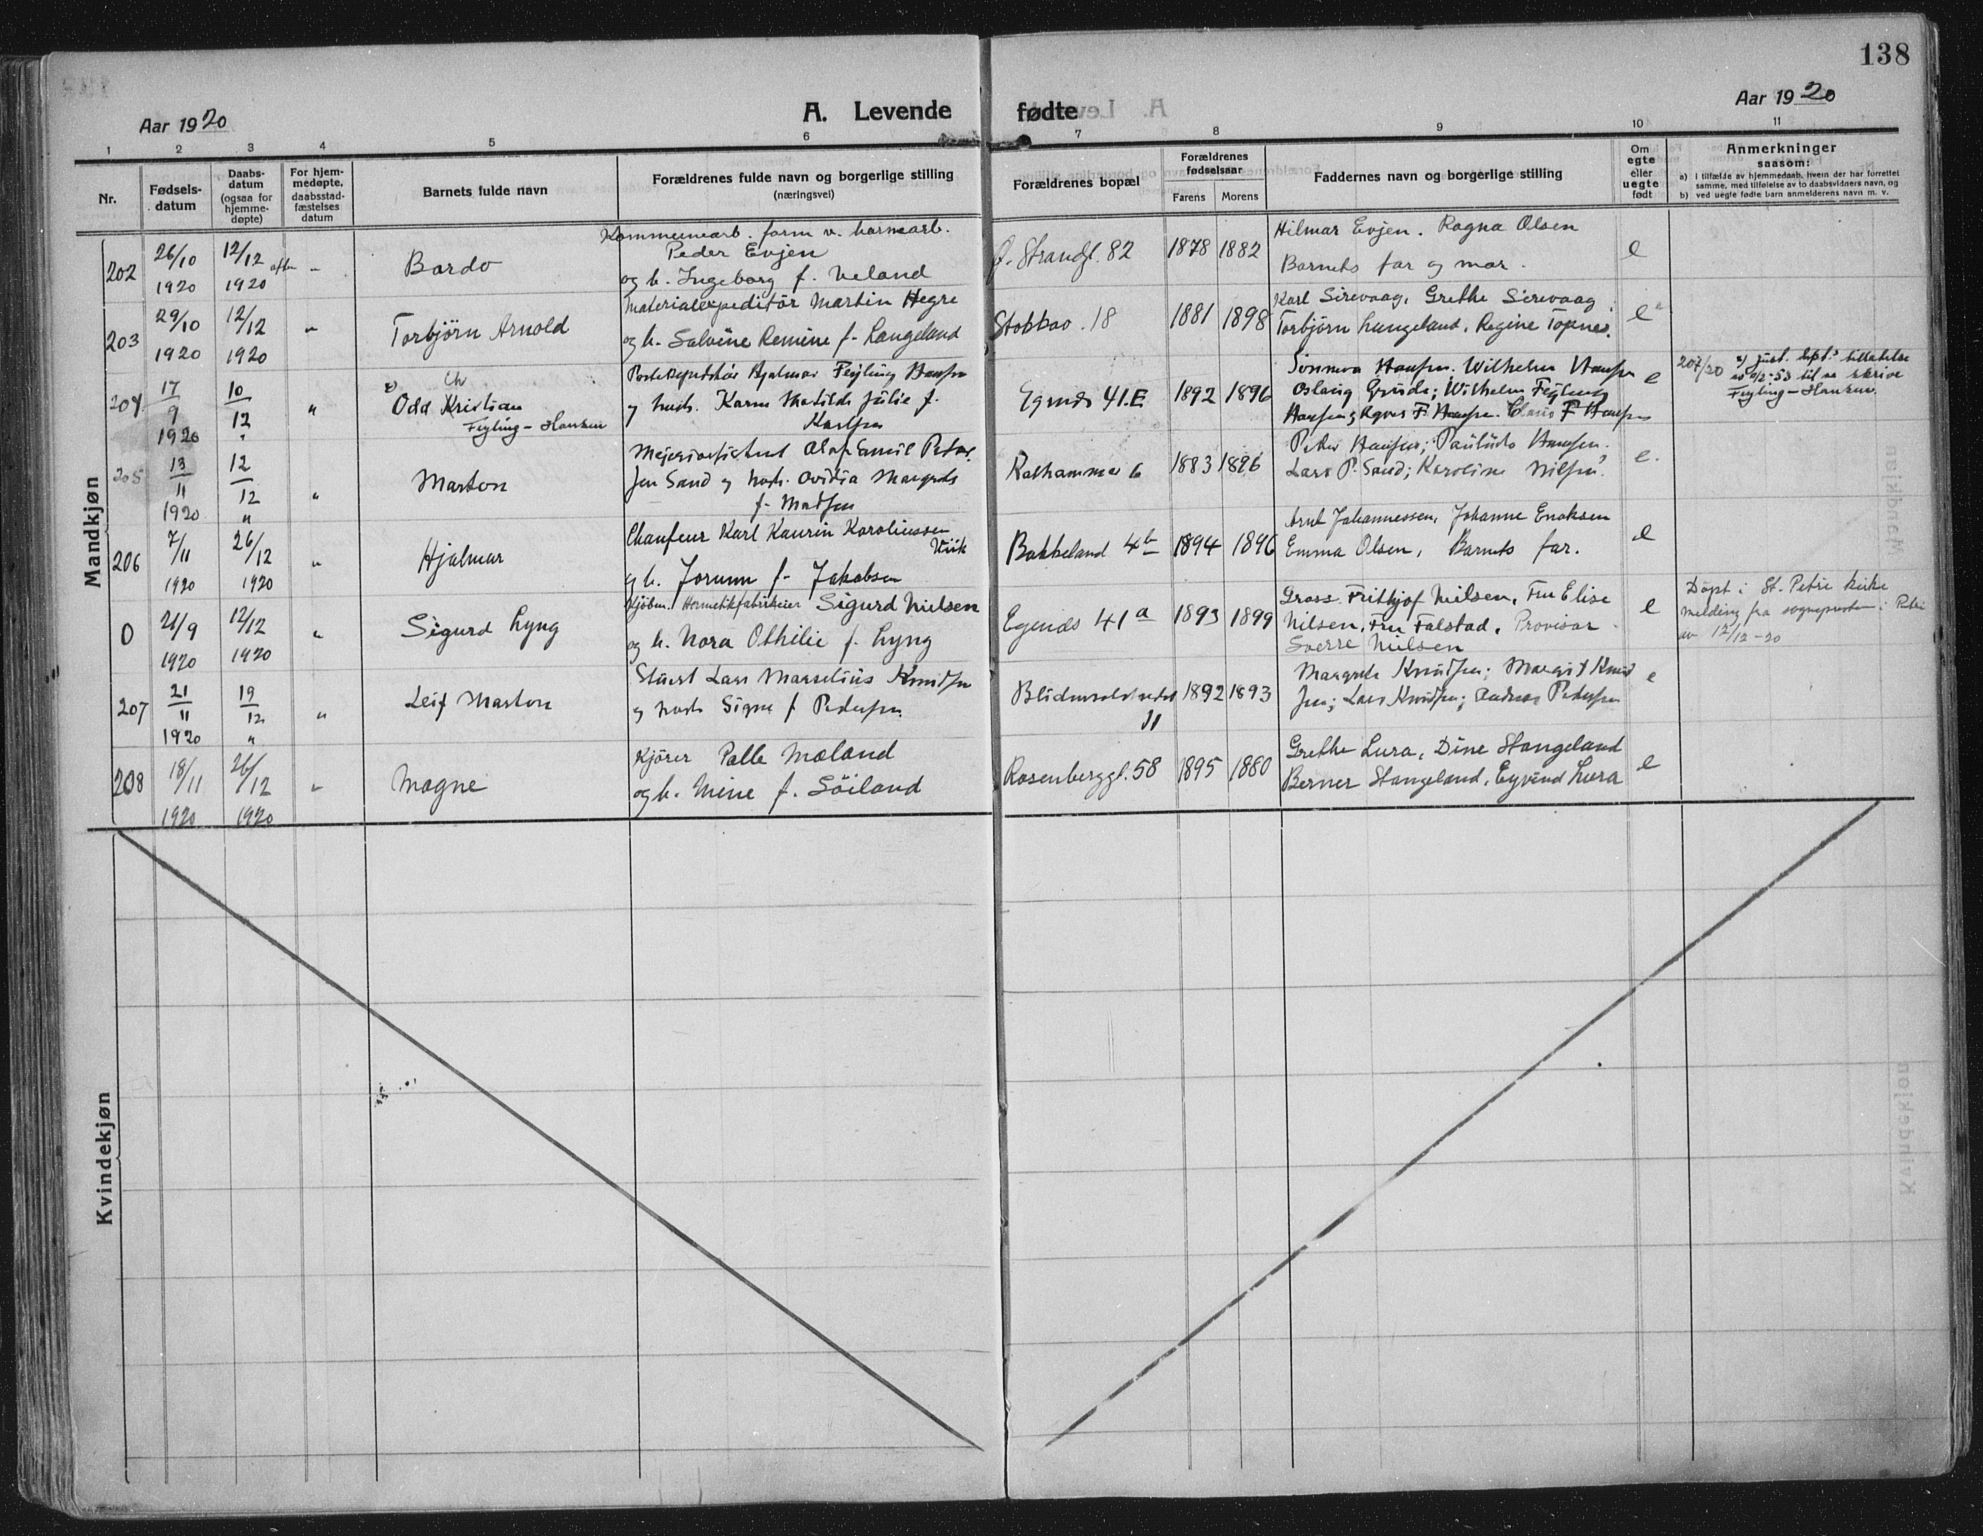 138
Aar 1920
A. Levende fødte
Aar 1920
1 2 3 4 5 6 7 8 9 10 11
Nr.
Fødsels-
datum
Daabs-
datum
(ogsaa for
hjemme-
døpte)
For hjem-
medøpte,
daabsstad-
fæstelses
datum
Barnets fulde navn
Forældrenes fulde navn og borgerlige stilling
(næringsvei)
Forældrenes bopæl
Forældrenes
fødselsaar
Farens Morens
Faddernes navn og borgerlige stilling
Om
egte
eller
uegte
født
Anmerkninger
saasom:
a) I tilfælde av hjemmedaab, hvem der har forrettet
samme, med tilføielse av to daabsvidners navn, og
b) ved uegte fødte barn anmelderens navn m. v.
Mandkjøn
202 26/10 1920 12/12 1920 "
Bordo
Peder Evjen
og h. Ingeborg f. Veland
Ø. Strandgt. 82 1878 1882
Hilmar Evjen. Ragna Olsen
Barnets far og mor.
e
203 29/10 1920 12/12 1920 "
Torbjörn Arnold
Materialexpeditör Martin Hegre
og h. Salvine Remine f. Langeland
Stokkav. 18 1881 1898
Karl Sirevaag, Grethe Sirevaag
Torbjörn Langeland, Regine Topnes.
e
204 17/9 1920 10/12 " "
Chr
Odd Kristian
Feyling-Hansen
Hjalmar Feyling Hansen
og hust. Karen Matilde Julie f.
Karlsen
Egenes 41.E 1892 1896
Wilhelm Hansen
Oslaug Grude; Wilhelm Feyling
Hansen; Agnes F. Hansen. Claus F Hansen
e
207/20 Just. dept.s tillatelse
av 6/2-53 til aa skrive
Feyling-Hansen.
205 13/11 1920 12/12 " "
Marton
Meieribetjent Olaf Emil Peter-
sen Sand og hust. Ovidia Margrete
f. Madsen
6 1883 1896
Peter Hansen; Hansen.
Lars P. Sand; Karoline Nilsen
e.
206 7/11 1920 26/12 1920 "
Hjalmar
Chaufeur Karl Kaurin Karoliussen
Vik
og h. Jorunn f. Jakobsen
Bakkeland 4b 1894 1896
Arnt Johannessen, Johanne Enoksen
Emma Olsen, Barnets far.
e
0 21/9 1920 12/12 1920 "
Sigurd Lyng
Kjöbm. Hermetikfabrikeier Sigurd Nielsen
og h. Nora Othilie f. Lyng
Egenes 41a 1893 1899
Gross. Frithjof Nielsen, Fru Elise
Nilsen, Fru Falstad, Provisor
Sverre Nielsen
e
Döpt i St. Petri kirke
melding fra sognepresten i Petri
av 12/12-20
207 21/11 1920 19/12 " "
Leif Marton
Stuert Lars Marselius Knudsen
og hust. Signe f Pedersen.
11 1892 1893
Margrete Knudsen; Margit Knud
sen; Lars Knudsen; Andreas Pedersen
e
208 18/11 1920 26/12 1920 "
Magne
Kjörer Palle Mæland
og h. Mine f. Söiland
Rosenberggt. 58 1895 1880
Grethe Lura, Dine Stangeland
Berner Stangeland, Eyvind Lura
e
Kvindekjøn